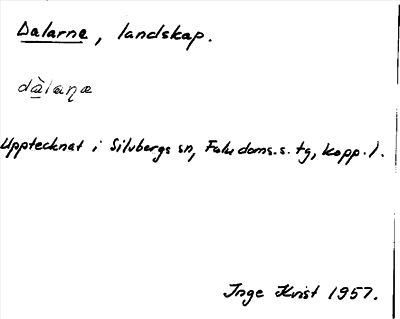 Dalarne, landskap.
dàlaṇæ
Upptecknat i Silvbergs sn, Falu doms.s. tg, Kopp. l.
Inge Kvist 1957.